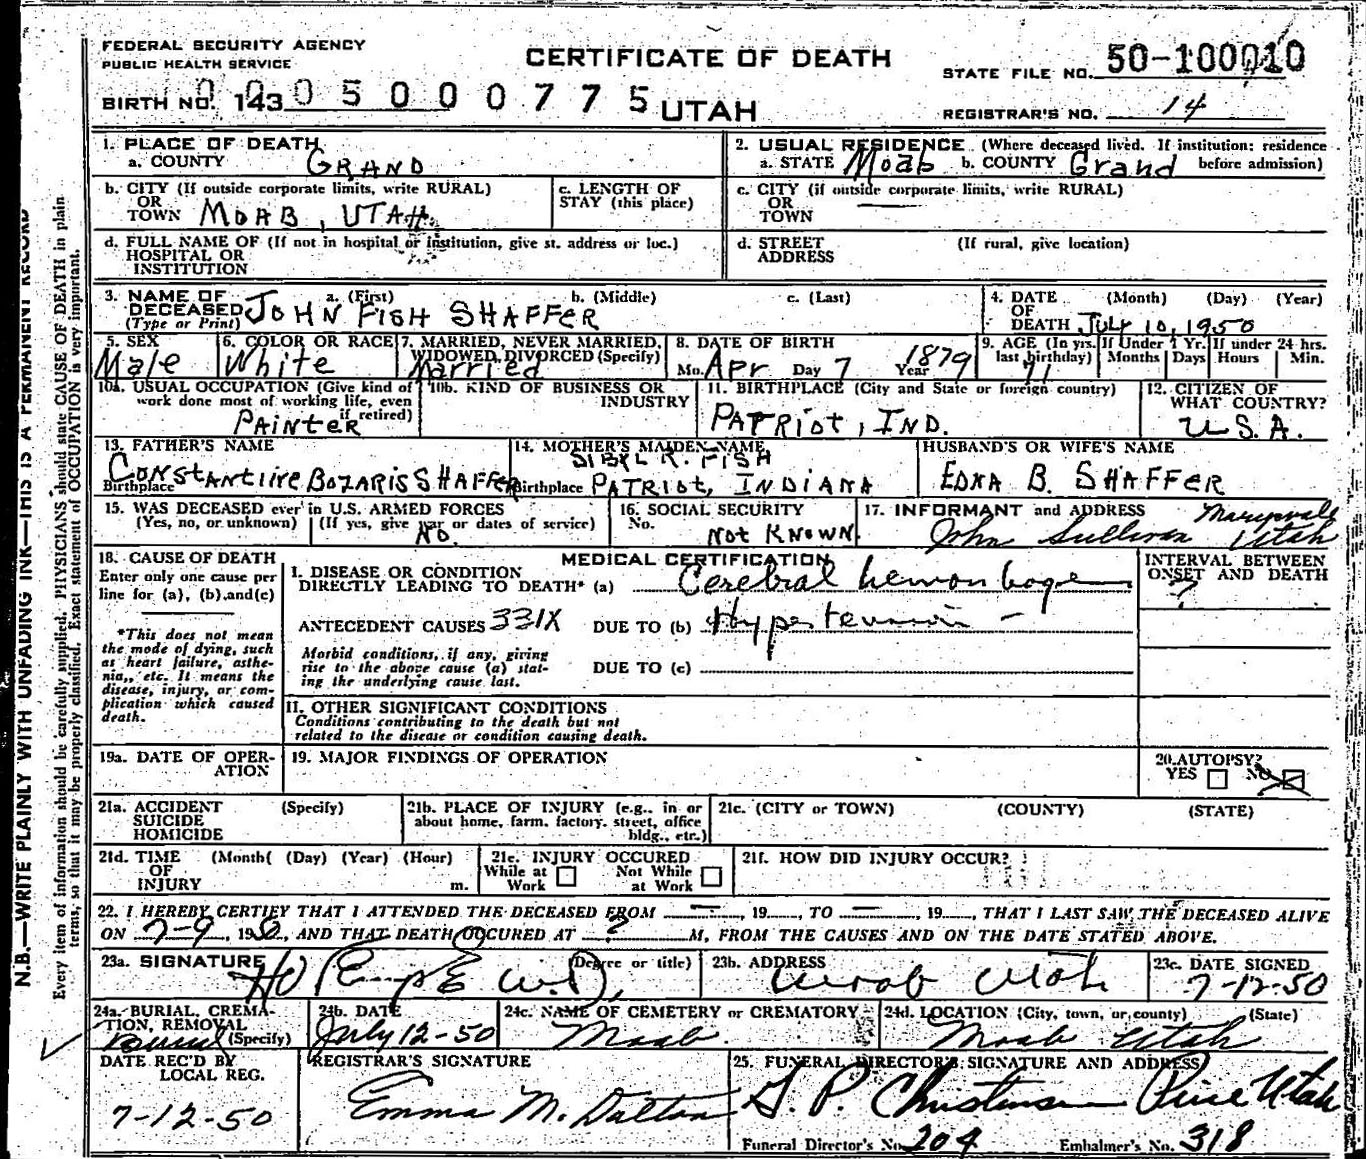 FEDERAL SECURITY AGENCY
PUBLIC HEALTH SERVICE
CERTIFICATE OF DEATH
STATE FILE NO. 50-100010
BIRTH NO. 143 0 0 0 5 0 0 0 7 7 5 UTAH
REGISTRAR'S NO. 14
1. PLACE OF DEATH
a. COUNTY GRAND
2. USUAL RESIDENCE (Where deceased lived. If institution: residence before admission)
a. STATE Moab b. COUNTY Grand
b. CITY (If outside corporate limits, write RURAL)
OR
TOWN MOAB, UTAH.
c. LENGTH OF
STAY (this place)
c. CITY (if outside corporate limits, write RURAL)
OR
TOWN
d. FULL NAME OF (If not in hospital or institution, give st. address or loc.)
HOSPITAL OR
INSTITUTION
d. STREET (If rural, give location)
ADDRESS
3. NAME OF a. (First) b. (Middle) c. (Last)
DECEASED JOHN FISH SHAFFER
(Type or Print)
4. DATE (Month) (Day) (Year)
OF
DEATH JULY 10, 1950
5. SEX
Male
6. COLOR OR RACE
White
7. MARRIED, NEVER MARRIED,
WIDOWED, DIVORCED (Specify)
Married
8. DATE OF BIRTH
Mo. Apr Day 7 Year 1879
9. AGE (In yrs. last birthday) If Under 1 Yr. If under 24 hrs.
71 Months Days Hours Min.
10a. USUAL OCCUPATION (Give kind of
work done most of working life, even
if retired)
PAINTER
10b. KIND OF BUSINESS OR
INDUSTRY
11. BIRTHPLACE (City and State or foreign country)
PATRIOT, IND.
12. CITIZEN OF
WHAT COUNTRY?
U.S.A.
13. FATHER'S NAME
CONSTANTINE BOZARIS SHAFFER
Birthplace
14. MOTHER'S MAIDEN NAME
SIBYL R. FISH
Birthplace PATRIOT, INDIANA
HUSBAND'S OR WIFE'S NAME
EDNA B. SHAFFER
15. WAS DECEASED ever in U.S. ARMED FORCES
(Yes, no, or unknown) (If yes, give war or dates of service)
NO.
16. SOCIAL SECURITY
No.
NOT KNOWN.
17. INFORMANT and ADDRESS Marysvale
John Sullivan Utah
18. CAUSE OF DEATH
Enter only one cause per
line for (a), (b), and (c)
*This does not mean
the mode of dying, such
as heart failure, asthe-
nia,, etc. It means the
disease, injury, or com-
plication which caused
death.
MEDICAL CERTIFICATION
I. DISEASE OR CONDITION
DIRECTLY LEADING TO DEATH* (a) Cerebral hemorrhage
ANTECEDENT CAUSES 331X DUE TO (b) Hypertension -
Morbid conditions, if any, giving
rise to the above cause (a) stat-
ing the underlying cause last.
DUE TO (c)
INTERVAL BETWEEN
ONSET AND DEATH
?
II. OTHER SIGNIFICANT CONDITIONS
Conditions contributing to the death but not
related to the disease or condition causing death.
19a. DATE OF OPER-
ATION
19. MAJOR FINDINGS OF OPERATION
20. AUTOPSY?
YES NO
21a. ACCIDENT (Specify)
SUICIDE
HOMICIDE
21b. PLACE OF INJURY (e.g., in or
about home, farm, factory, street, office
bldg., etc.)
21c. (CITY or TOWN) (COUNTY) (STATE)
21d. TIME (Month( (Day) (Year) (Hour)
OF
INJURY m.
21e. INJURY OCCURED
While at Work Not While at Work
21f. HOW DID INJURY OCCUR?
22. I HEREBY CERTIFY THAT I ATTENDED THE DECEASED FROM —, 19, TO —, 19, THAT I LAST SAW THE DECEASED ALIVE
ON 7-9, 1950, AND THAT DEATH OCCURED AT ? M, FROM THE CAUSES AND ON THE DATE STATED ABOVE.
23a. SIGNATURE (Degree or title)
23b. ADDRESS
Moab Utah
23c. DATE SIGNED
7-12-50
24a. BURIAL, CREMA-
TION, REMOVAL
Burial (Specify)
24b. DATE
July 12-50
24c. NAME OF CEMETERY or CREMATORY
Moab.
24d. LOCATION (City, town, or county) (State)
Moab Utah
DATE REC'D BY
LOCAL REG.
7-12-50
REGISTRAR'S SIGNATURE
Emma M. Dalton
25. FUNERAL DIRECTOR'S SIGNATURE AND ADDRESS
S. P. Christensen Price Utah
Funeral Director's No. 204 Embalmer's No. 318
N.B.—WRITE PLAINLY WITH UNFADING INK—THIS IS A PERMANENT RECORD
Every item of information should be carefully supplied. PHYSICIANS should state CAUSE OF DEATH in plain
terms, so that it may be properly classified. Exact statement of OCCUPATION is very important.